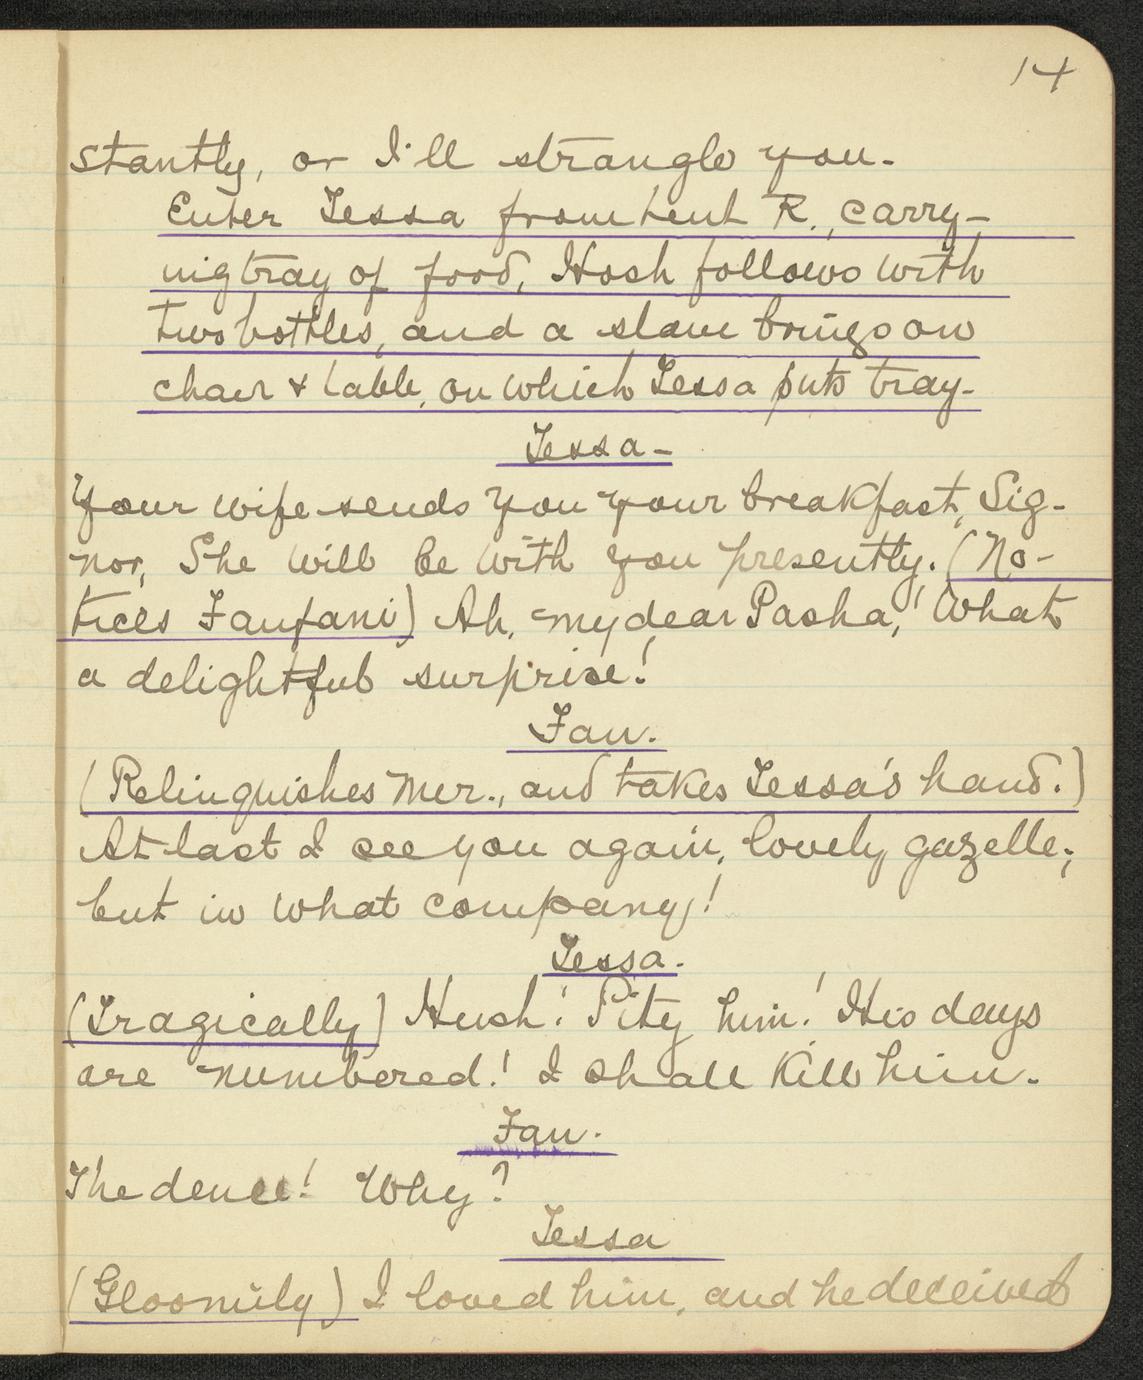 14
stantly, or I'll strangle you.
Enter Tessa from tent R., carry-
ing tray of food, Hosh follows with
two bottles, and a slave brings on
chair & table, on which Tessa puts tray.
Tessa-
Your wife sends you your breakfast, Sig-
nor, She will be with you presently. (No-
tices Fanfani) Ah, my dear Pasha, What
a delightful surprise!
Fan.
(Relinquishes Mer., and takes Tessa's hand.)
At last I see you again, lovely gazelle;
but in what company!
Tessa.
(Tragically) Hush! Pity him! His days
are numbered! I shall kill him.
Fan.
The deuce! Why?
Tessa
(Gloomily) I loved him, and he deceived